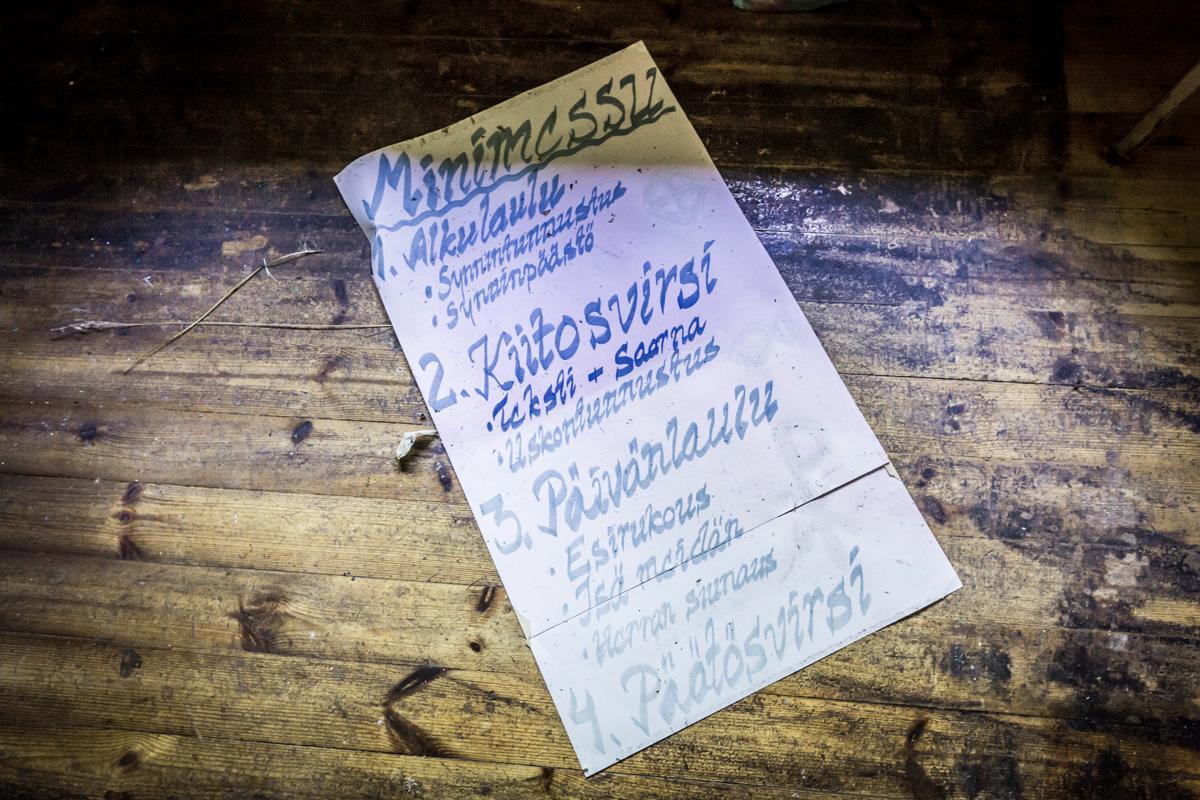 Minimessu
1. Alkulaulu
• Synnintunnustus
• Synninpäästö
2. Kiitosvirsi
• Teksti + Saarna
• Uskontunnustus
3. Päivänlaulu
• Esirukous
• Isä meidän
• Herran siunaus
4. Päätösvirsi